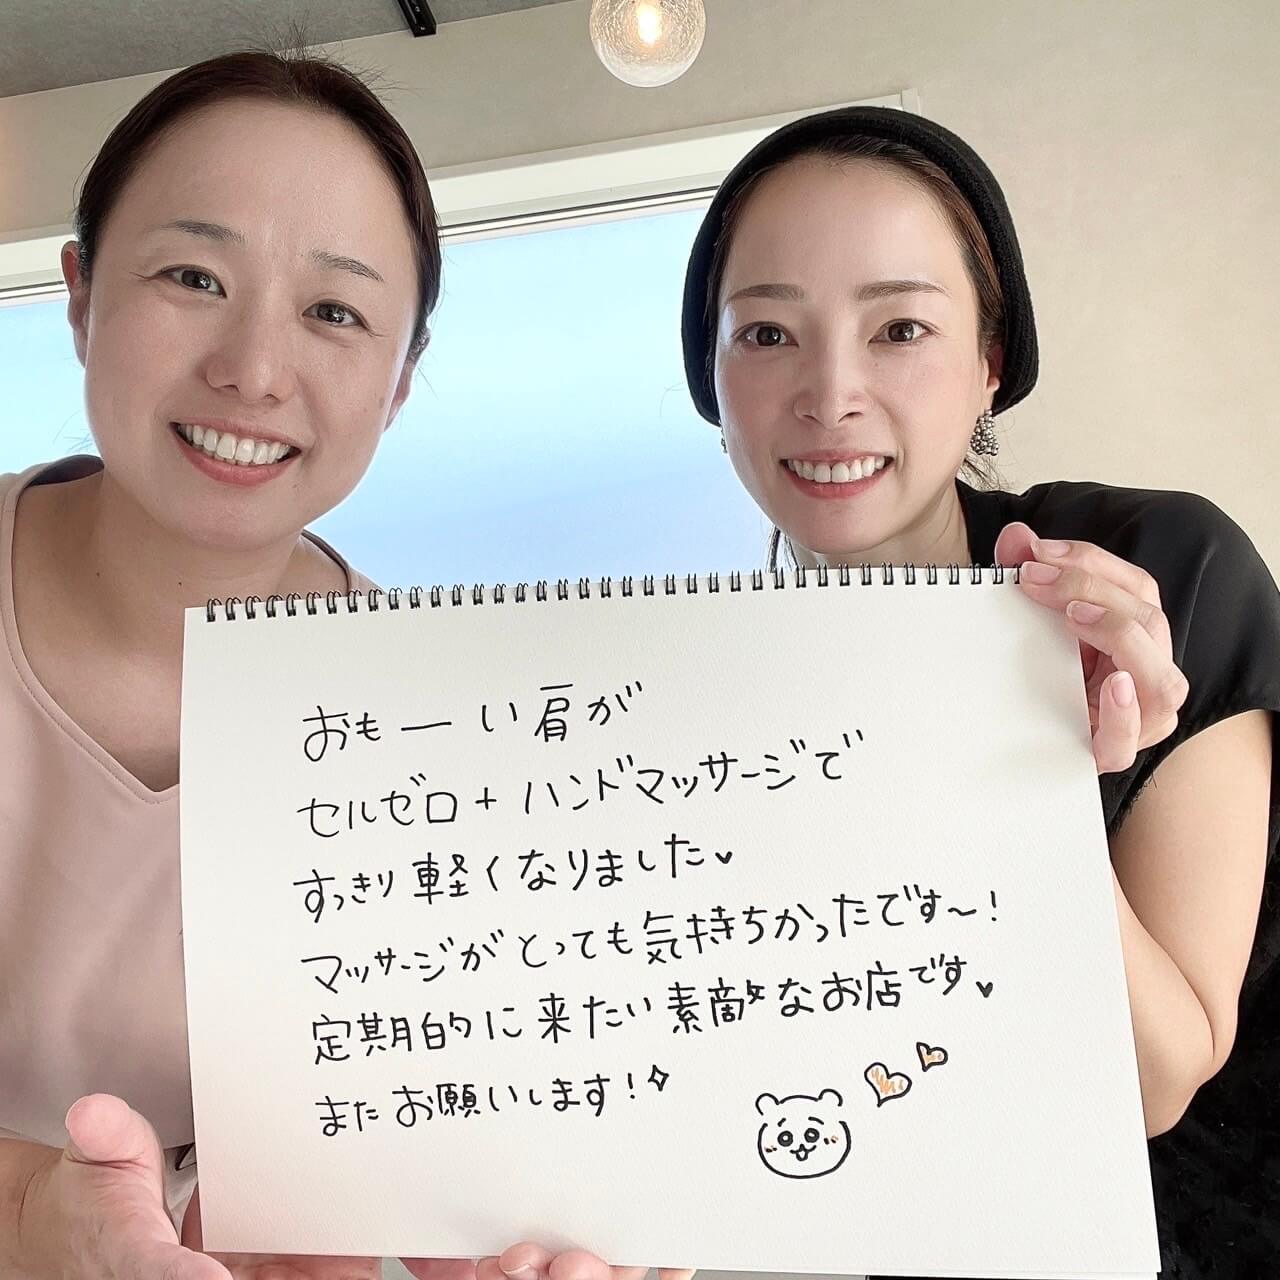 おもーい肩が
セルゼロ+ハンドマッサージで
すっきり軽くなりました♥
マッサージがとっても気持ちかったです〜!
定期的に来たい素敵なお店です♥
またお願いします!✧